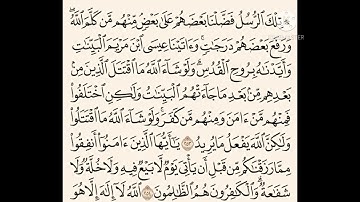 تِلْكَ ٱلرُّسُلُ فَضَّلْنَا بَعْضَهُمْ عَلَىٰ بَعْضٍ مِّنْهُم مَّن كَلَّمَ ٱللَّهُ
وَرَفَعَ بَعْضَهُمْ دَرَجَٰتٍ وَءَاتَيْنَا عِيسَى ٱبْنَ مَرْيَمَ ٱلْبَيِّنَٰتِ
وَأَيَّدْنَٰهُ بِرُوحِ ٱلْقُدُسِ وَلَوْ شَآءَ ٱللَّهُ مَا ٱقْتَتَلَ ٱلَّذِينَ مِنۢ
بَعْدِهِم مِّنۢ بَعْدِ مَا جَآءَتْهُمُ ٱلْبَيِّنَٰتُ وَلَٰكِنِ ٱخْتَلَفُوا۟
فَمِنْهُم مَّنْ ءَامَنَ وَمِنْهُم مَّن كَفَرَ وَلَوْ شَآءَ ٱللَّهُ مَا ٱقْتَتَلُوا۟
وَلَٰكِنَّ ٱللَّهَ يَفْعَلُ مَا يُرِيدُ ٢٥٣ يَٰٓأَيُّهَا ٱلَّذِينَ ءَامَنُوٓا۟ أَنفِقُوا۟
مِمَّا رَزَقْنَٰكُم مِّن قَبْلِ أَن يَأْتِىَ يَوْمٌ لَّا بَيْعٌ فِيهِ وَلَا خُلَّةٌ وَلَا
شَفَٰعَةٌ وَٱلْكَٰفِرُونَ هُمُ ٱلظَّٰلِمُونَ ٢٥٤ ٱللَّهُ لَآ إِلَٰهَ إِلَّا هُوَ